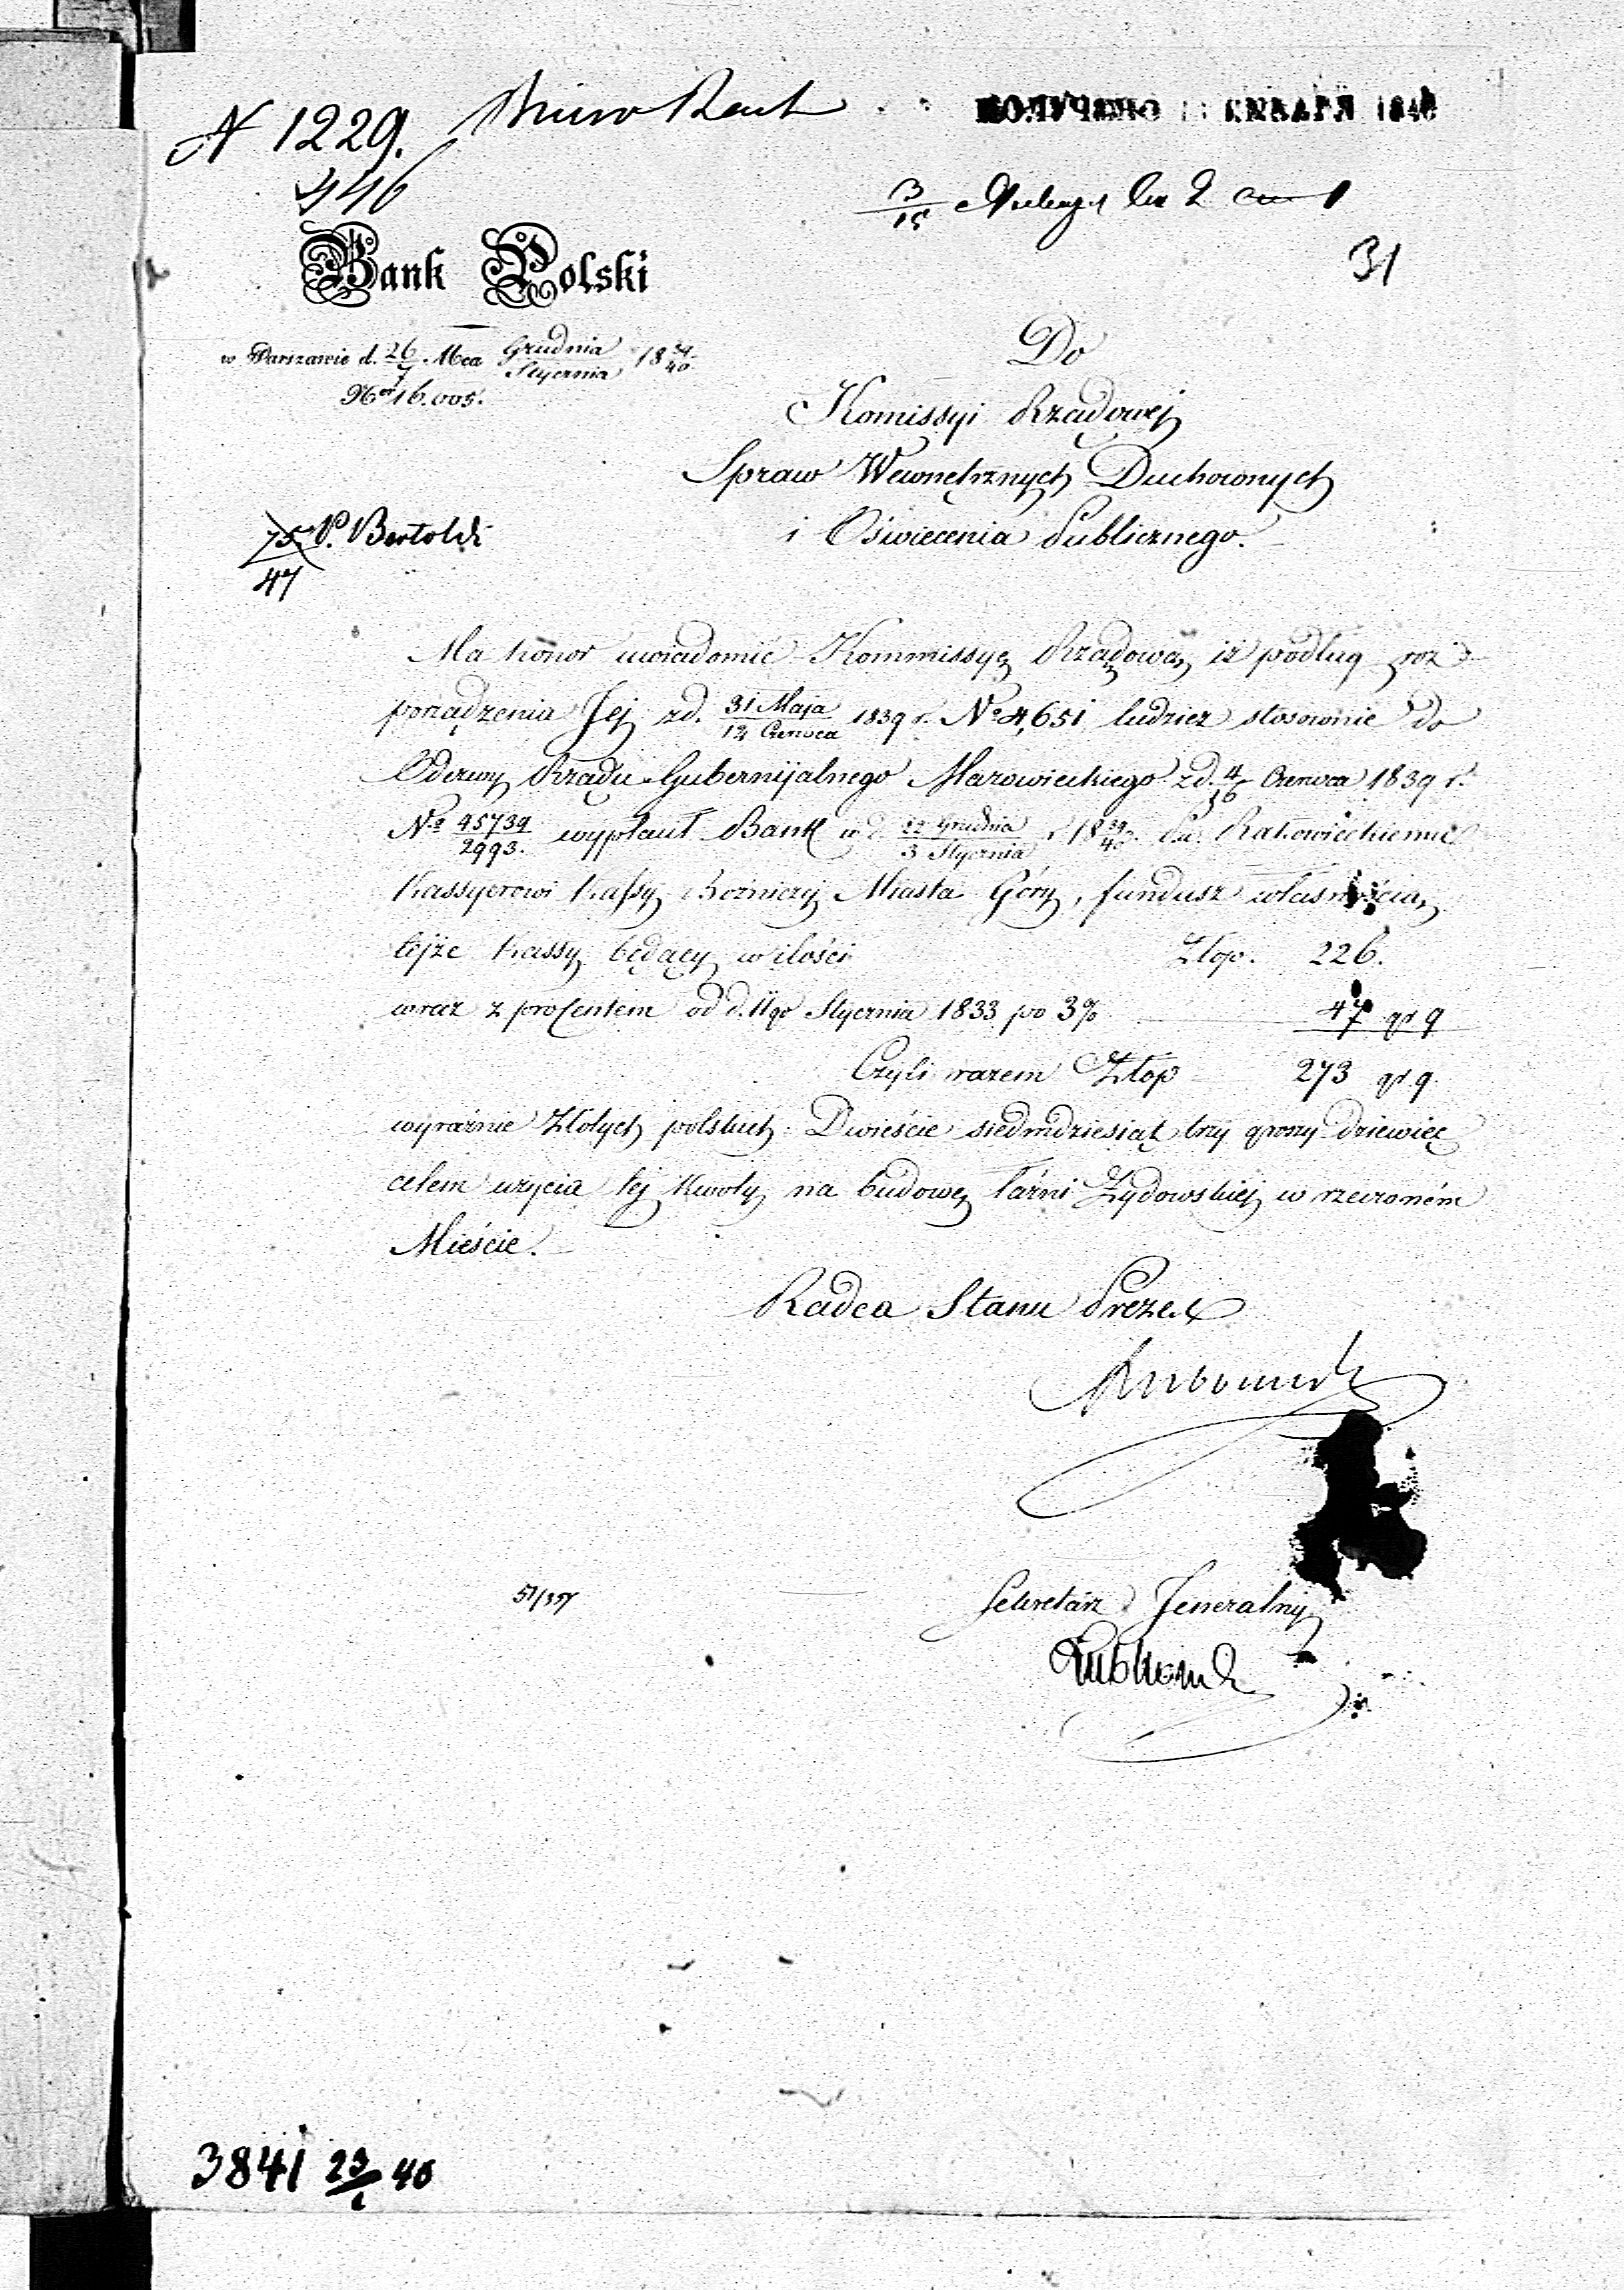 N 1229. Biuro Rach
446
ПОЛУЧЕНО ЯНВАРЯ 1840
3/15
31
Bank Polski
w Warszawie d. 26/7 Mca Grudnia/Stycznia 18 39/40
Nor 16.005.
Do
Komissyi Rządowej
Spraw Wewnętrznych Duchownych
i Oświecenia Publicznego.
75 P. Bertoldi
47
Ma honor uwiadomić Kommissyę Rządową, iż podług roz
porządzenia Jej z d. 31 Maja/12 Czerwca 1839 r. No 4,651 tudzież stosownie do
Odezwy Rządu Gubernijalnego Mazowieckiego z d. 4/16 Czerwca 1839 r.
No 45739/2993. wypłacił Bank w d. 22 Grudnia/3 Stycznia r 18 39/40 Rakowieckiemu
Kassyerowi Kassy Bożniczej Miasta Góry, fundusz własnością
tejże Kassy będący w ilości Złop. 226.
wraz z procentem od d. 11go Stycznia 1833 po 3% 47 gr 9
Czyli razem Złop 273 gr 9.
wyraźnie Złotych polskich Dwieście siedmdziesiąt trzy groszy dziewięć
celem użycia tej kwoty na budowę łaźni Żydowskiej w rzeczoném
Mieście.
Radca Stanu Prezes
Sekretarz Jeneralny
Łubkowski
51/357
3841 23/1 40